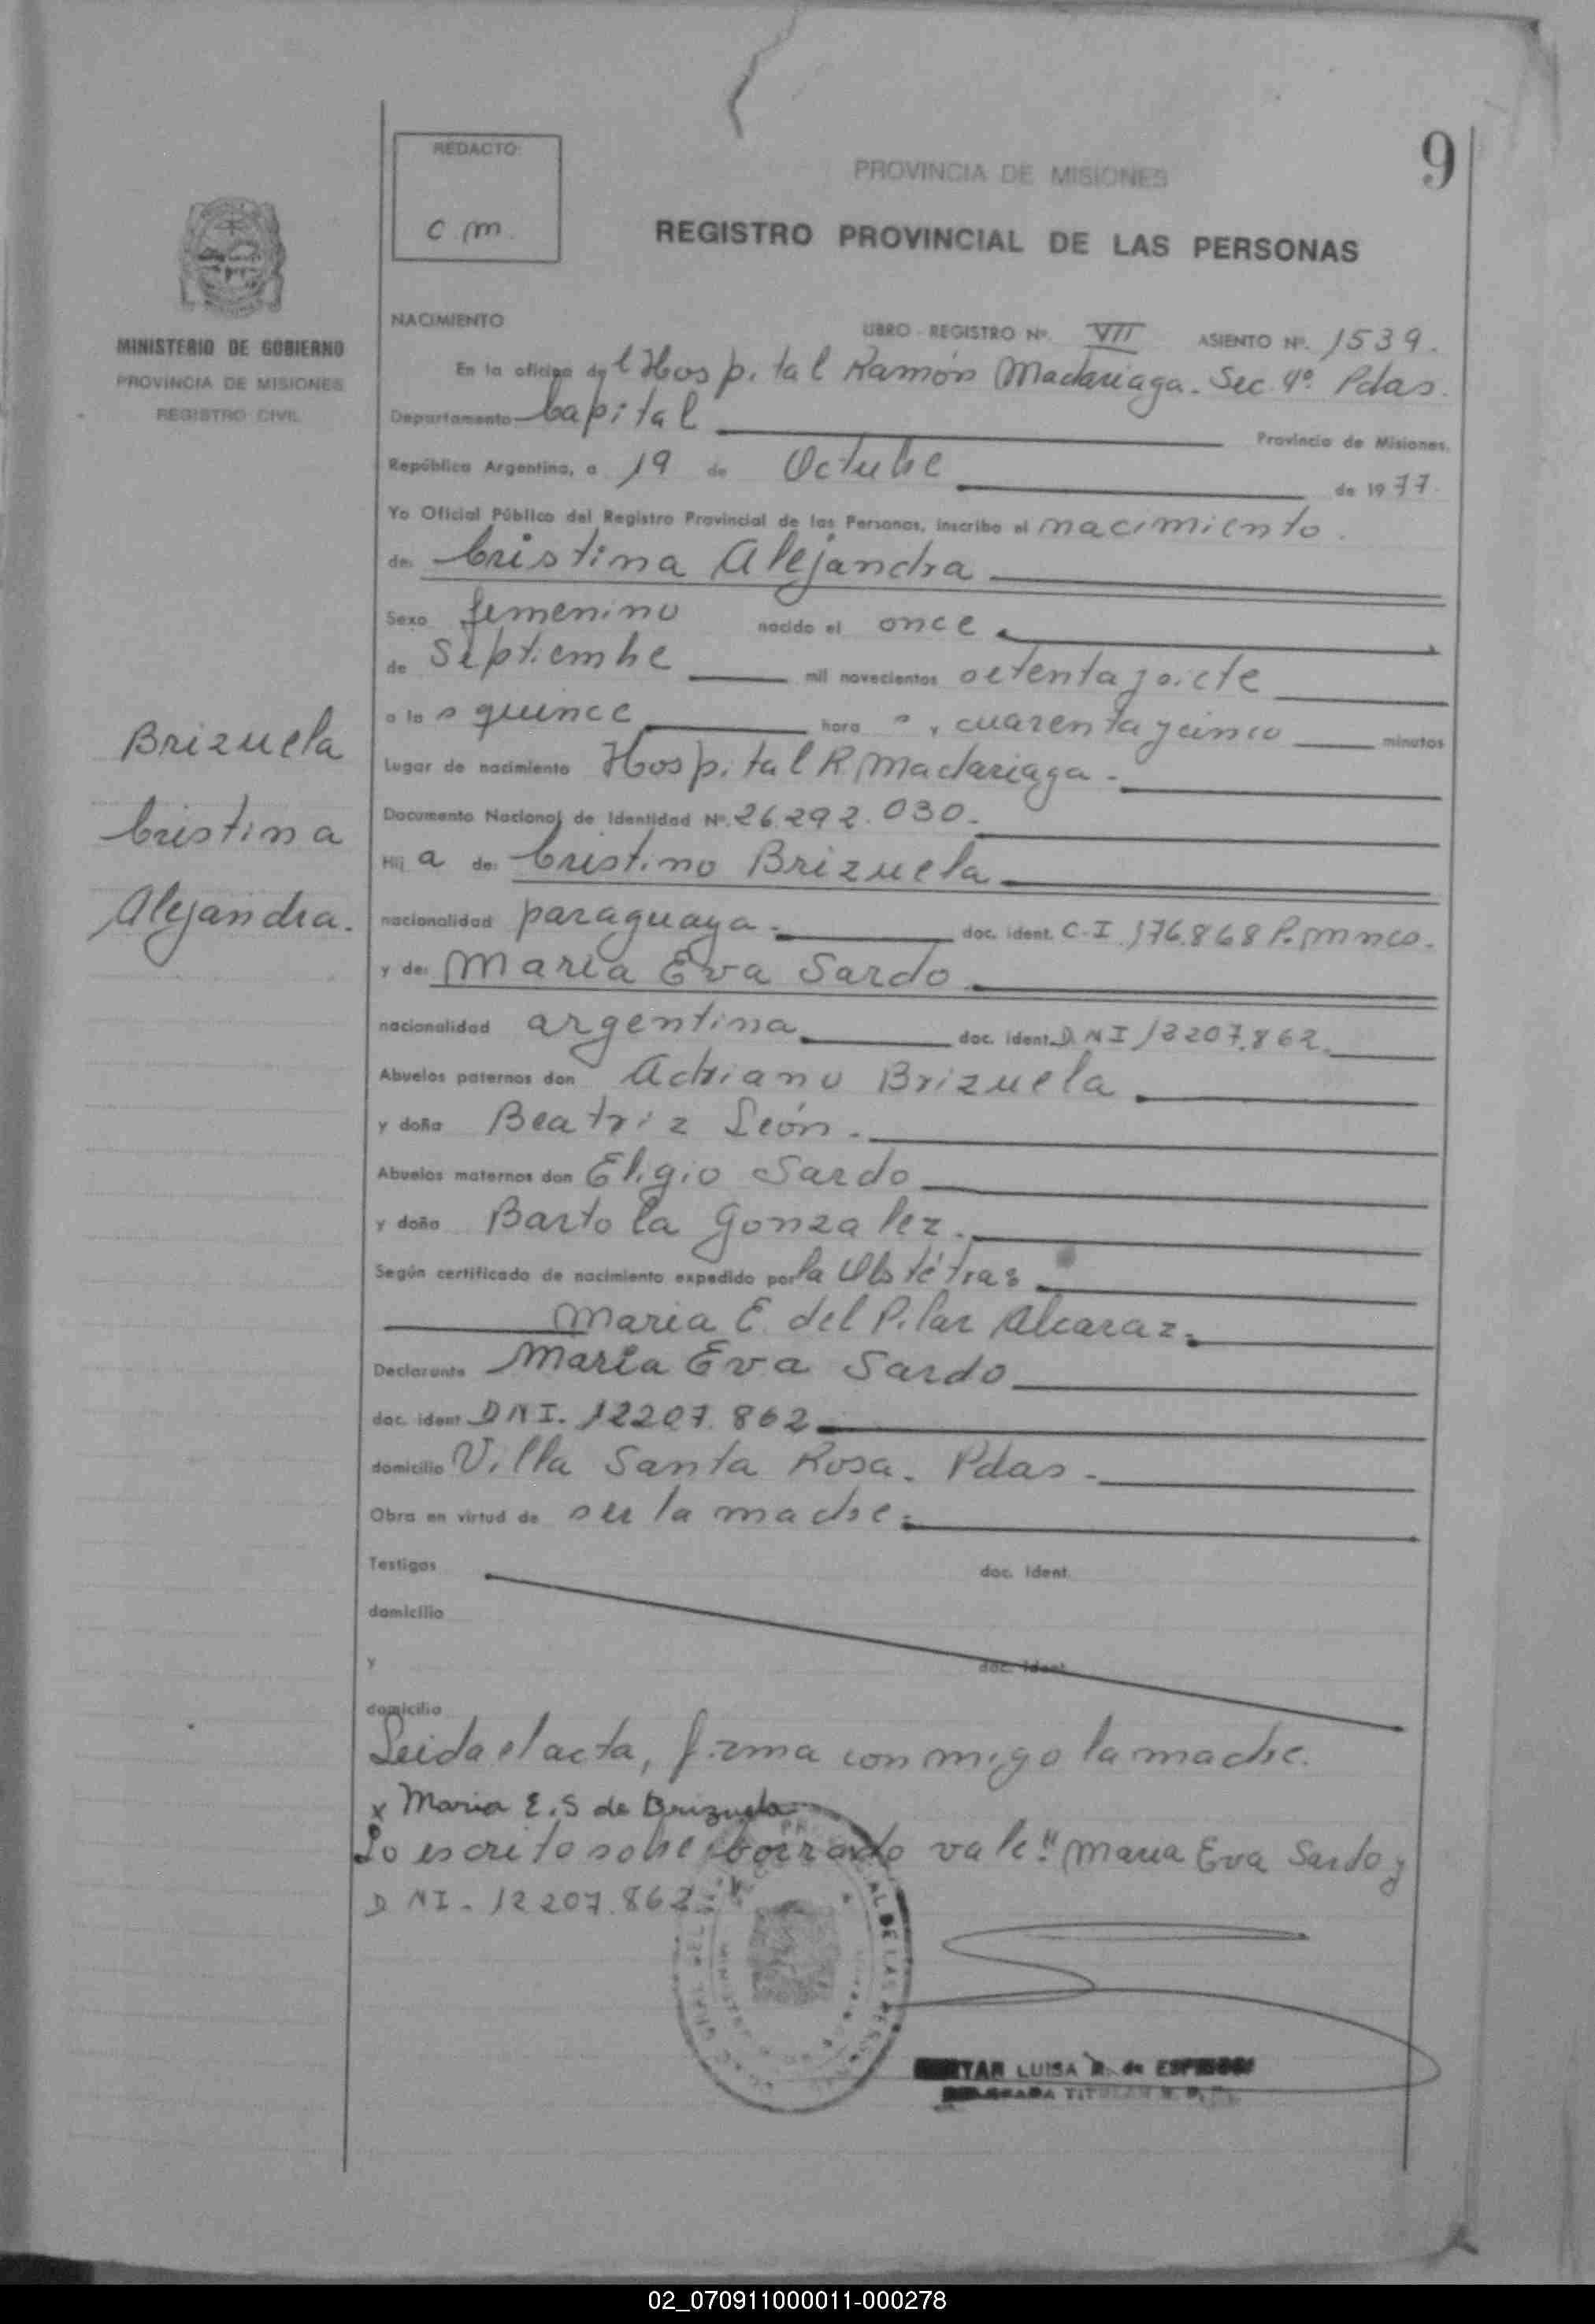 REDACTO:
c.m.
PROVINCIA DE MISIONES
9
REGISTRO PROVINCIAL DE LAS PERSONAS
MINISTERIO DE GOBIERNO
PROVINCIA DE MISIONES
REGISTRO CIVIL
NACIMIENTO
LIBRO - REGISTRO Nº. VII ASIENTO Nº. 1539.
En la oficina del Hospital Ramón Madariaga. Sec. 4º Pdas.
Departamento Capital Provincia de Misiones,
República Argentina, a 19 de Octubre de 1977.
Yo Oficial Público del Registro Provincial de las Personas, inscribo el nacimiento.
de: Cristina Alejandra
Sexo femenino nacido el once
de Septiembre mil novecientos setenta y siete
a las quince hora s, cuarenta y cinco minutos
Brizuela
Cristina
Alejandra.
Lugar de nacimiento Hospital R. Madariaga.
Documento Nacional de Identidad Nº. 26.292.030.
Hij a de: Cristino Brizuela
nacionalidad paraguaya. doc. ident. C.I. 176.868 P. Mnes.
y de: María Eva Sardo
nacionalidad argentina doc. ident. DNI 12207.862.
Abuelos paternos don Adriano Brizuela
y doña Beatriz León.
Abuelos maternos don Eligio Sardo
y doña Bartola Gonzalez.
Según certificado de nacimiento expedido por la Obstétras
Maria E. del Pilar Alcaraz.
Declarante María Eva Sardo
doc. ident. DNI. 12207.862
domicilio Villa Santa Rosa. Pdas.
Obra en virtud de ser la madre.
Testigos doc. ident.
domicilio
y doc. ident.
domicilio
Leida el acta, firma conmigo la madre.
x Maria E. S de Brizuela
Lo escrito sobre borrado vale: "Maria Eva Sardo y
DNI - 12207.862
AL DE LAS PERSONAS
LUISA R. de
02_070911000011-000278